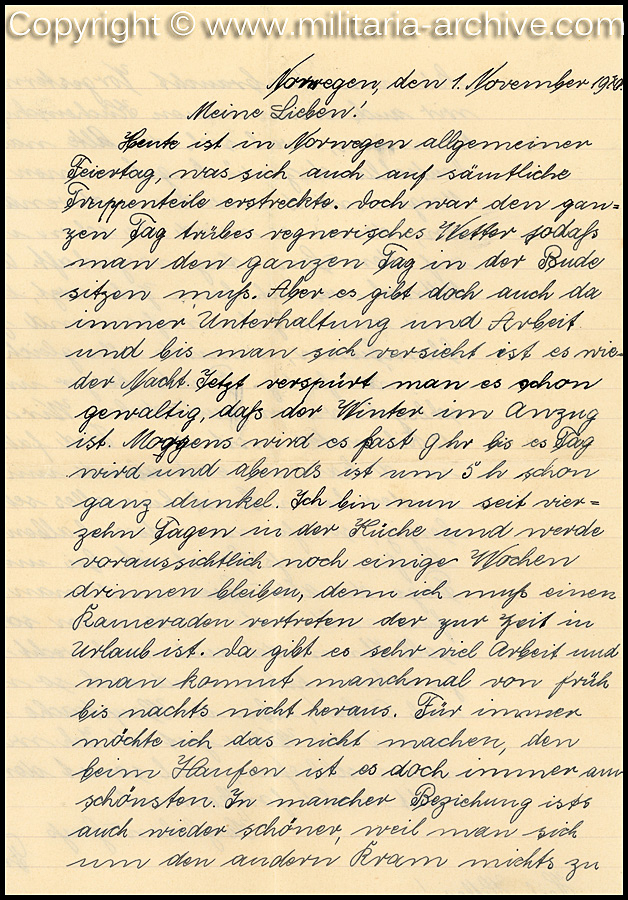 Copyright © www.militaria-archive.com
Norwegen, den 1. November 1940.
Meine Lieben!
Heute ist in Norwegen allgemeiner
Feiertag, was sich auch auf sämtliche
Truppenteile erstreckte. Doch war den gan=
zen Tag trübes regnerisches Wetter sodaß
man den ganzen Tag in der Bude
sitzen muß. Aber es gibt doch auch da
immer Unterhaltung und Arbeit
und bis man sich versicht ist es wie=
der Nacht. Jetzt verspürt man es schon
gewaltig, daß der Winter im Anzug
ist. Morgens wird es fast 9 hr bis es Tag
wird und abends ist um 5 h schon
ganz dunkel. Ich bin nun seit vier=
zehn Tagen in der Küche und werde
voraussichtlich noch einige Wochen
drinnen bleiben, denn ich muß einen
Kameraden vertreten der zur Zeit in
Urlaub ist. Da gibt es sehr viel Arbeit und
man kommt manchmal von früh
bis nachts nicht heraus. Für immer
möchte ich das nicht machen, den
beim Haufen ist es doch immer am
schönsten. In mancher Beziehung ists
auch wieder schöner, weil man sich
um den andern Kram nichts zu